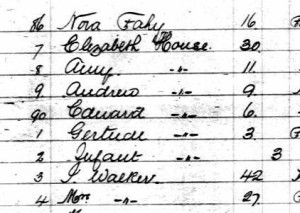 86 Nora Fahy 16
7 Elizabeth House. 30
8 Amy -"- 11.
9 Andrew -"- 9.
90 Edward -"- 6.
1 Gertude -"- 3
2 Infant -"- 3
3 J Walker. 42
4 Mrs -"- 27